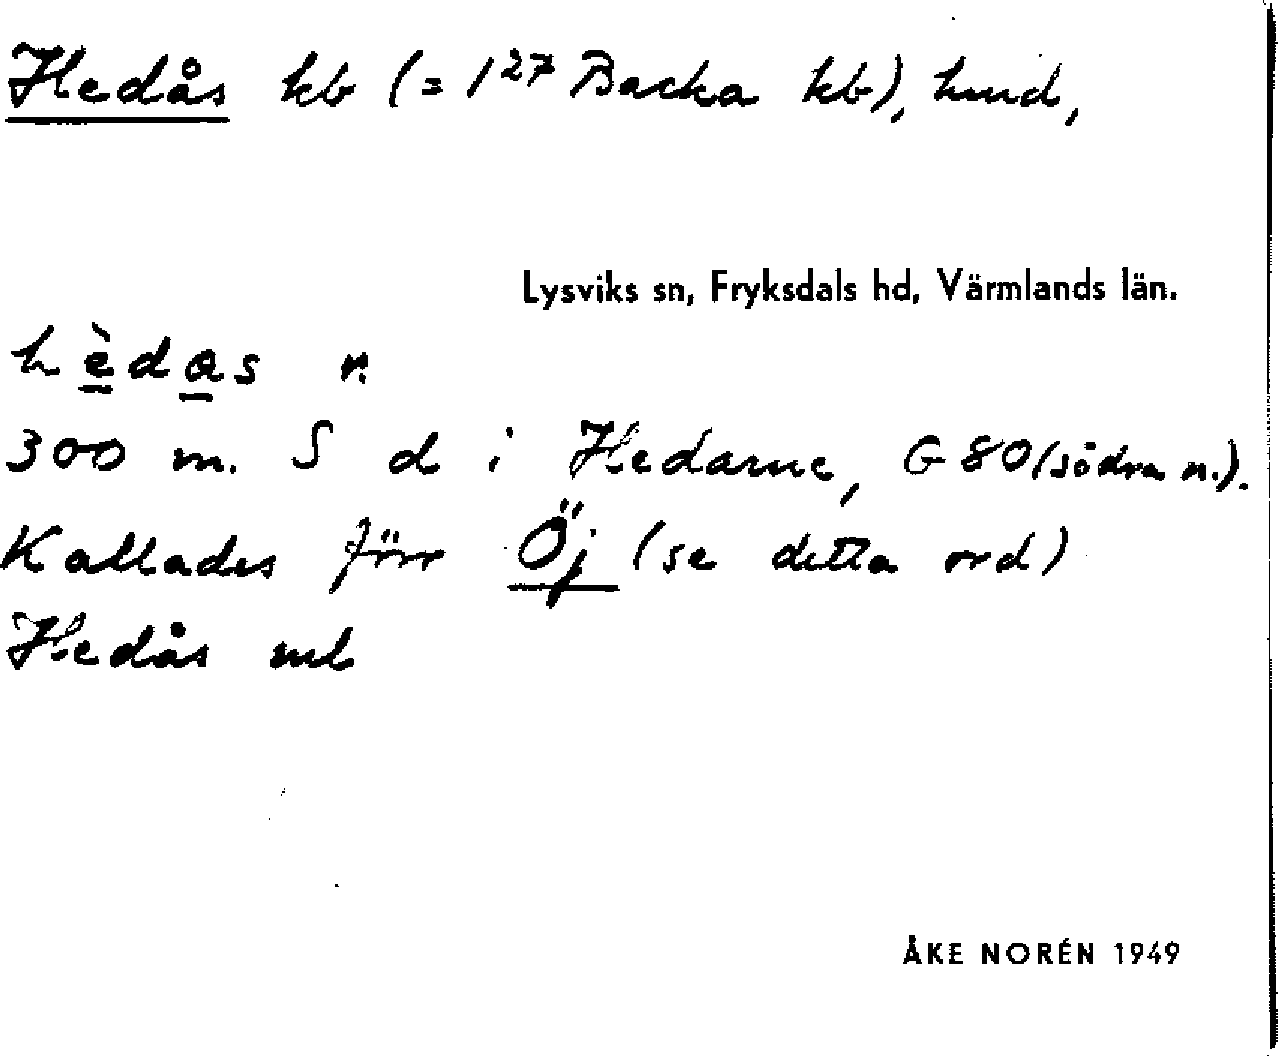 Hedås kb (= 1²⁷ Backa kb), hmd,
Lysviks sn, Fryksdals hd, Värmlands län.
hèdas n.
300 m. S d i Hedarne, G 80 (södra n.).
Kallades förr Öj (se detta ord)
Hedås mb
ÅKE NORÉN 1949